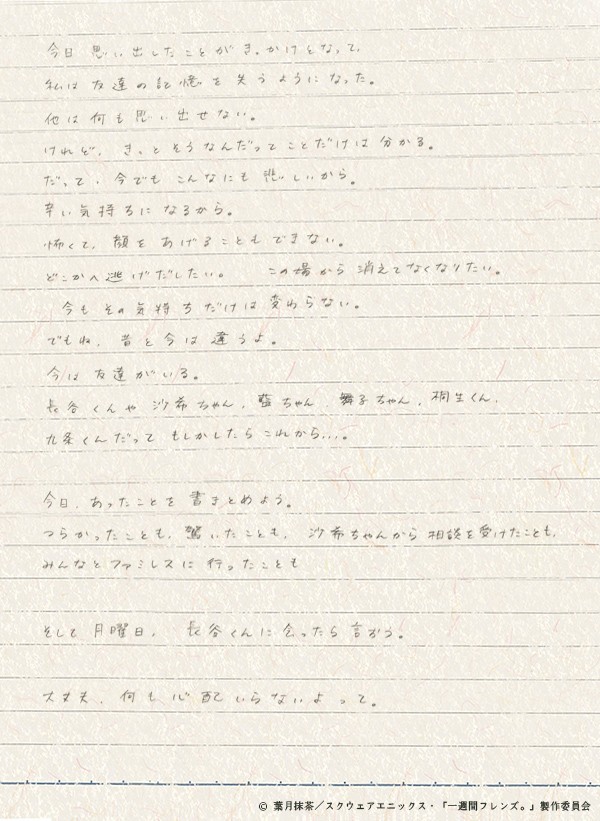 今日思い出したことがきっかけとなって、
私は友達の記憶を失うようになった。
他は何も思い出せない。
けれど、きっとそうなんだってことだけは分かる。
だって、今でもこんなにも悲しいから。
辛い気持ちになるから。
怖くて、顔をあげることもできない。
どこかへ逃げだしたい。 この場から消えてなくなりたい。
今もその気持ちだけは変わらない。
でもね、昔と今は違うよ。
今は友達がいる。
長谷くんや沙希ちゃん、藍ちゃん、舞子ちゃん、桐生くん、
九条くんだってもしかしたらこれから…。
今日、あったことを書きとめよう。
つらかったことも、驚いたことも、沙希ちゃんから相談を受けたことも、
みんなとファミレスに行ったことも
そして月曜日、長谷くんに会ったら言おう。
大丈夫、何も心配いらないよって。
© 葉月抹茶／スクウェアエニックス・「一週間フレンズ。」製作委員会